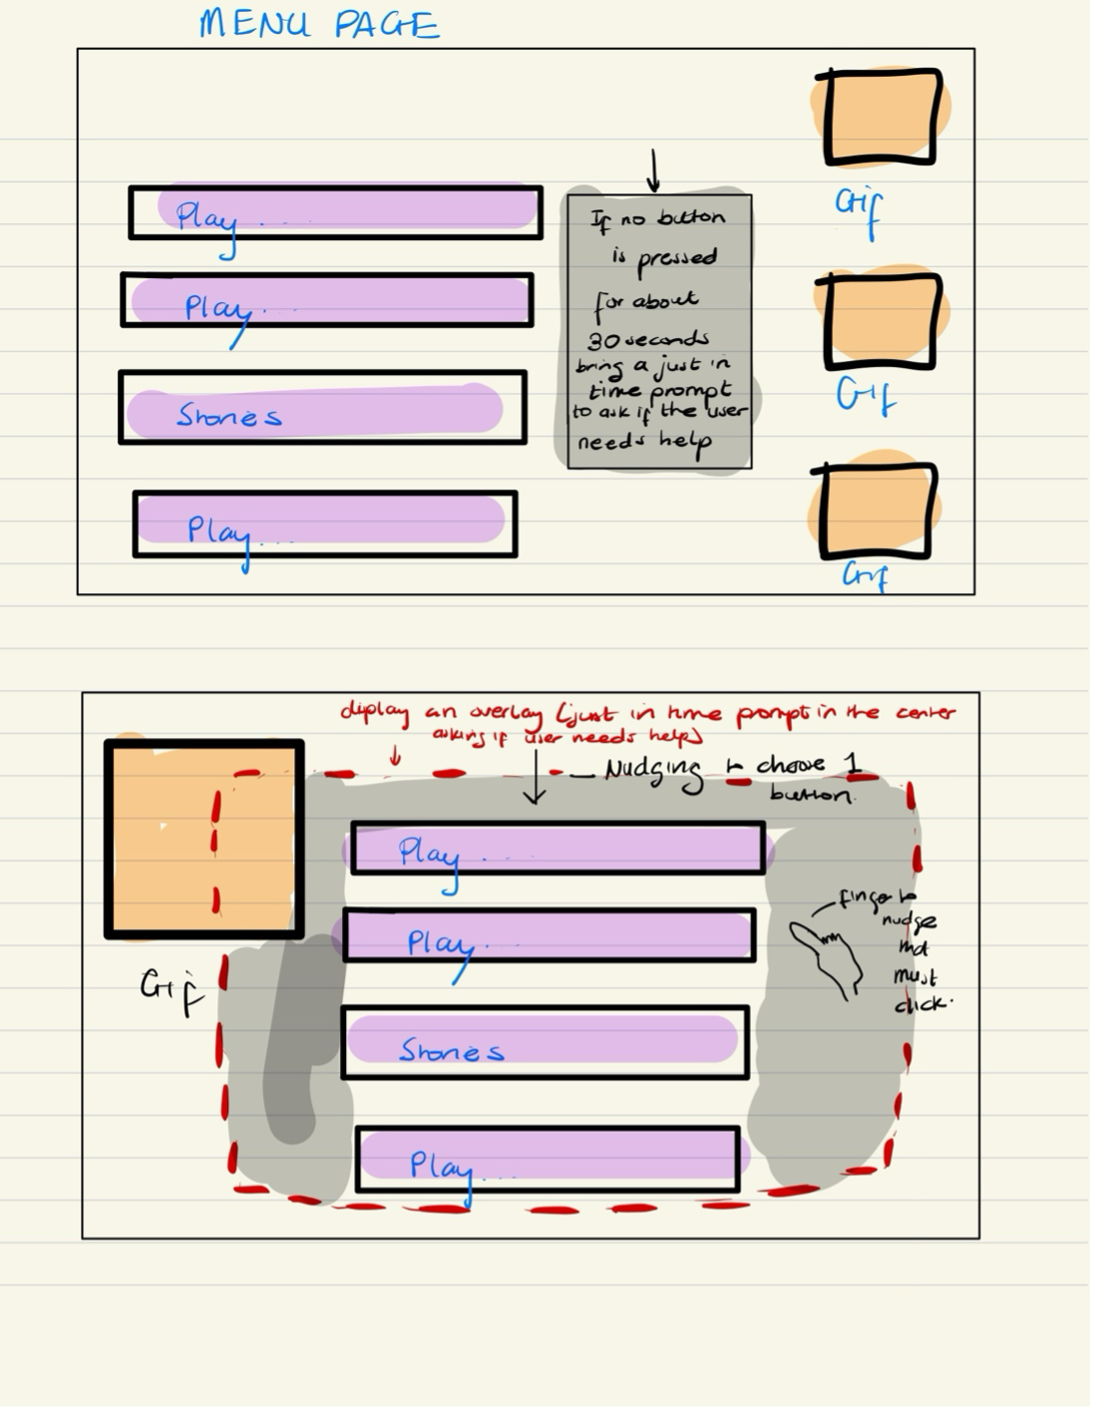 MENU PAGE
Play ....
Play....
Stories
Play...
If no button
is pressed
for about
30 seconds
bring a just in
time prompt
to ask if the user
needs help
Gif
Gif
Gif
display an overlay (just in time prompt in the center
asking if user needs help)
Nudging to choose 1
button.
Play ...
Play...
Stories
Play...
Gif
finger to
nudge
that
must
click.